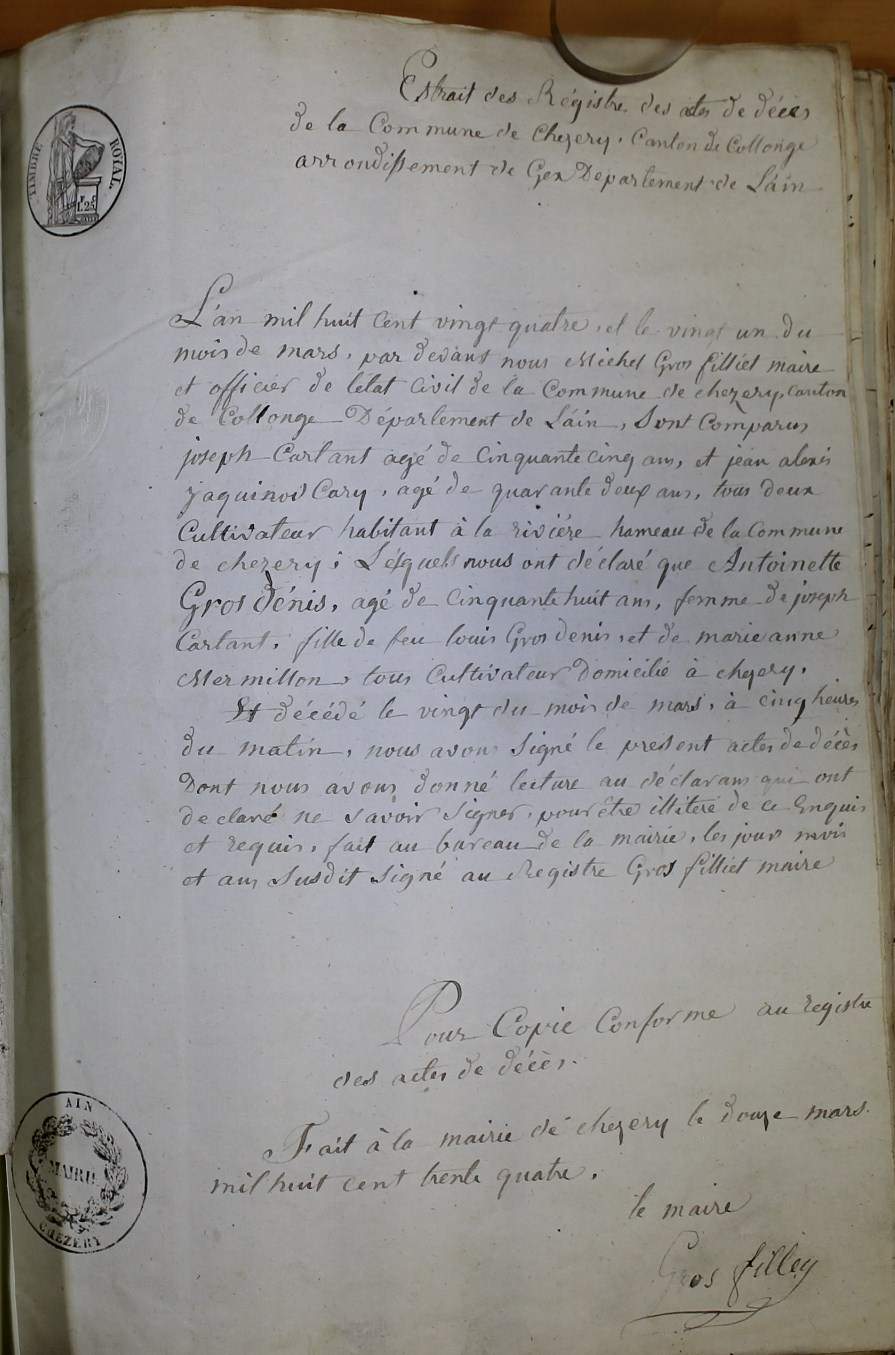 TIMBRE ROYAL.
Extrait des Régistre des actes de décès
de la Commune de Chezery, Canton de Collonge
arrondissement de Gex Département de Láin
L'an mil huit Cent vingt quatre, et le vingt un du
mois de mars, par devant nous Michel Gros filliet maire
et officier de l'état Civil de la Commune de chezery, canton
de Collonge Département de Láin, Sont Comparus
joseph Cartant agé de Cinquante cinq ans, et jean alexis
jaquinod Cary, agé de quarante deux ans, tous deux
Cultivateur habitant à la riviére hameau de la Commune
de chezery; Lésquels nous ont déclaré que Antoinette
Gros Dénis, agé de Cinquante huit ans, femme de joseph
Cartant, fille de feu louis Gros denis, et de marie anne
Mermillon, tous Cultivateur Domicilié à chezery,
Et décédé le vingt du mois de mars, à cinq heures
du matin, nous avons Signé le present actes de décès
Dont nous avons donné lecture au déclarans qui ont
declaré ne Savoir Signer, pour être illiteré de ce Enquis
et requis, fait au bureau de la mairie, les jour mois
et ans Susdit Signé au Registre Gros filliet maire
Pour Copie Conforme au registre
des actes de décès.
Fait à la mairie dé chezery le douze mars
mil huit cent trente quatre.
le maire
Gros filley
AIN
MAIRIE
CHEZERY